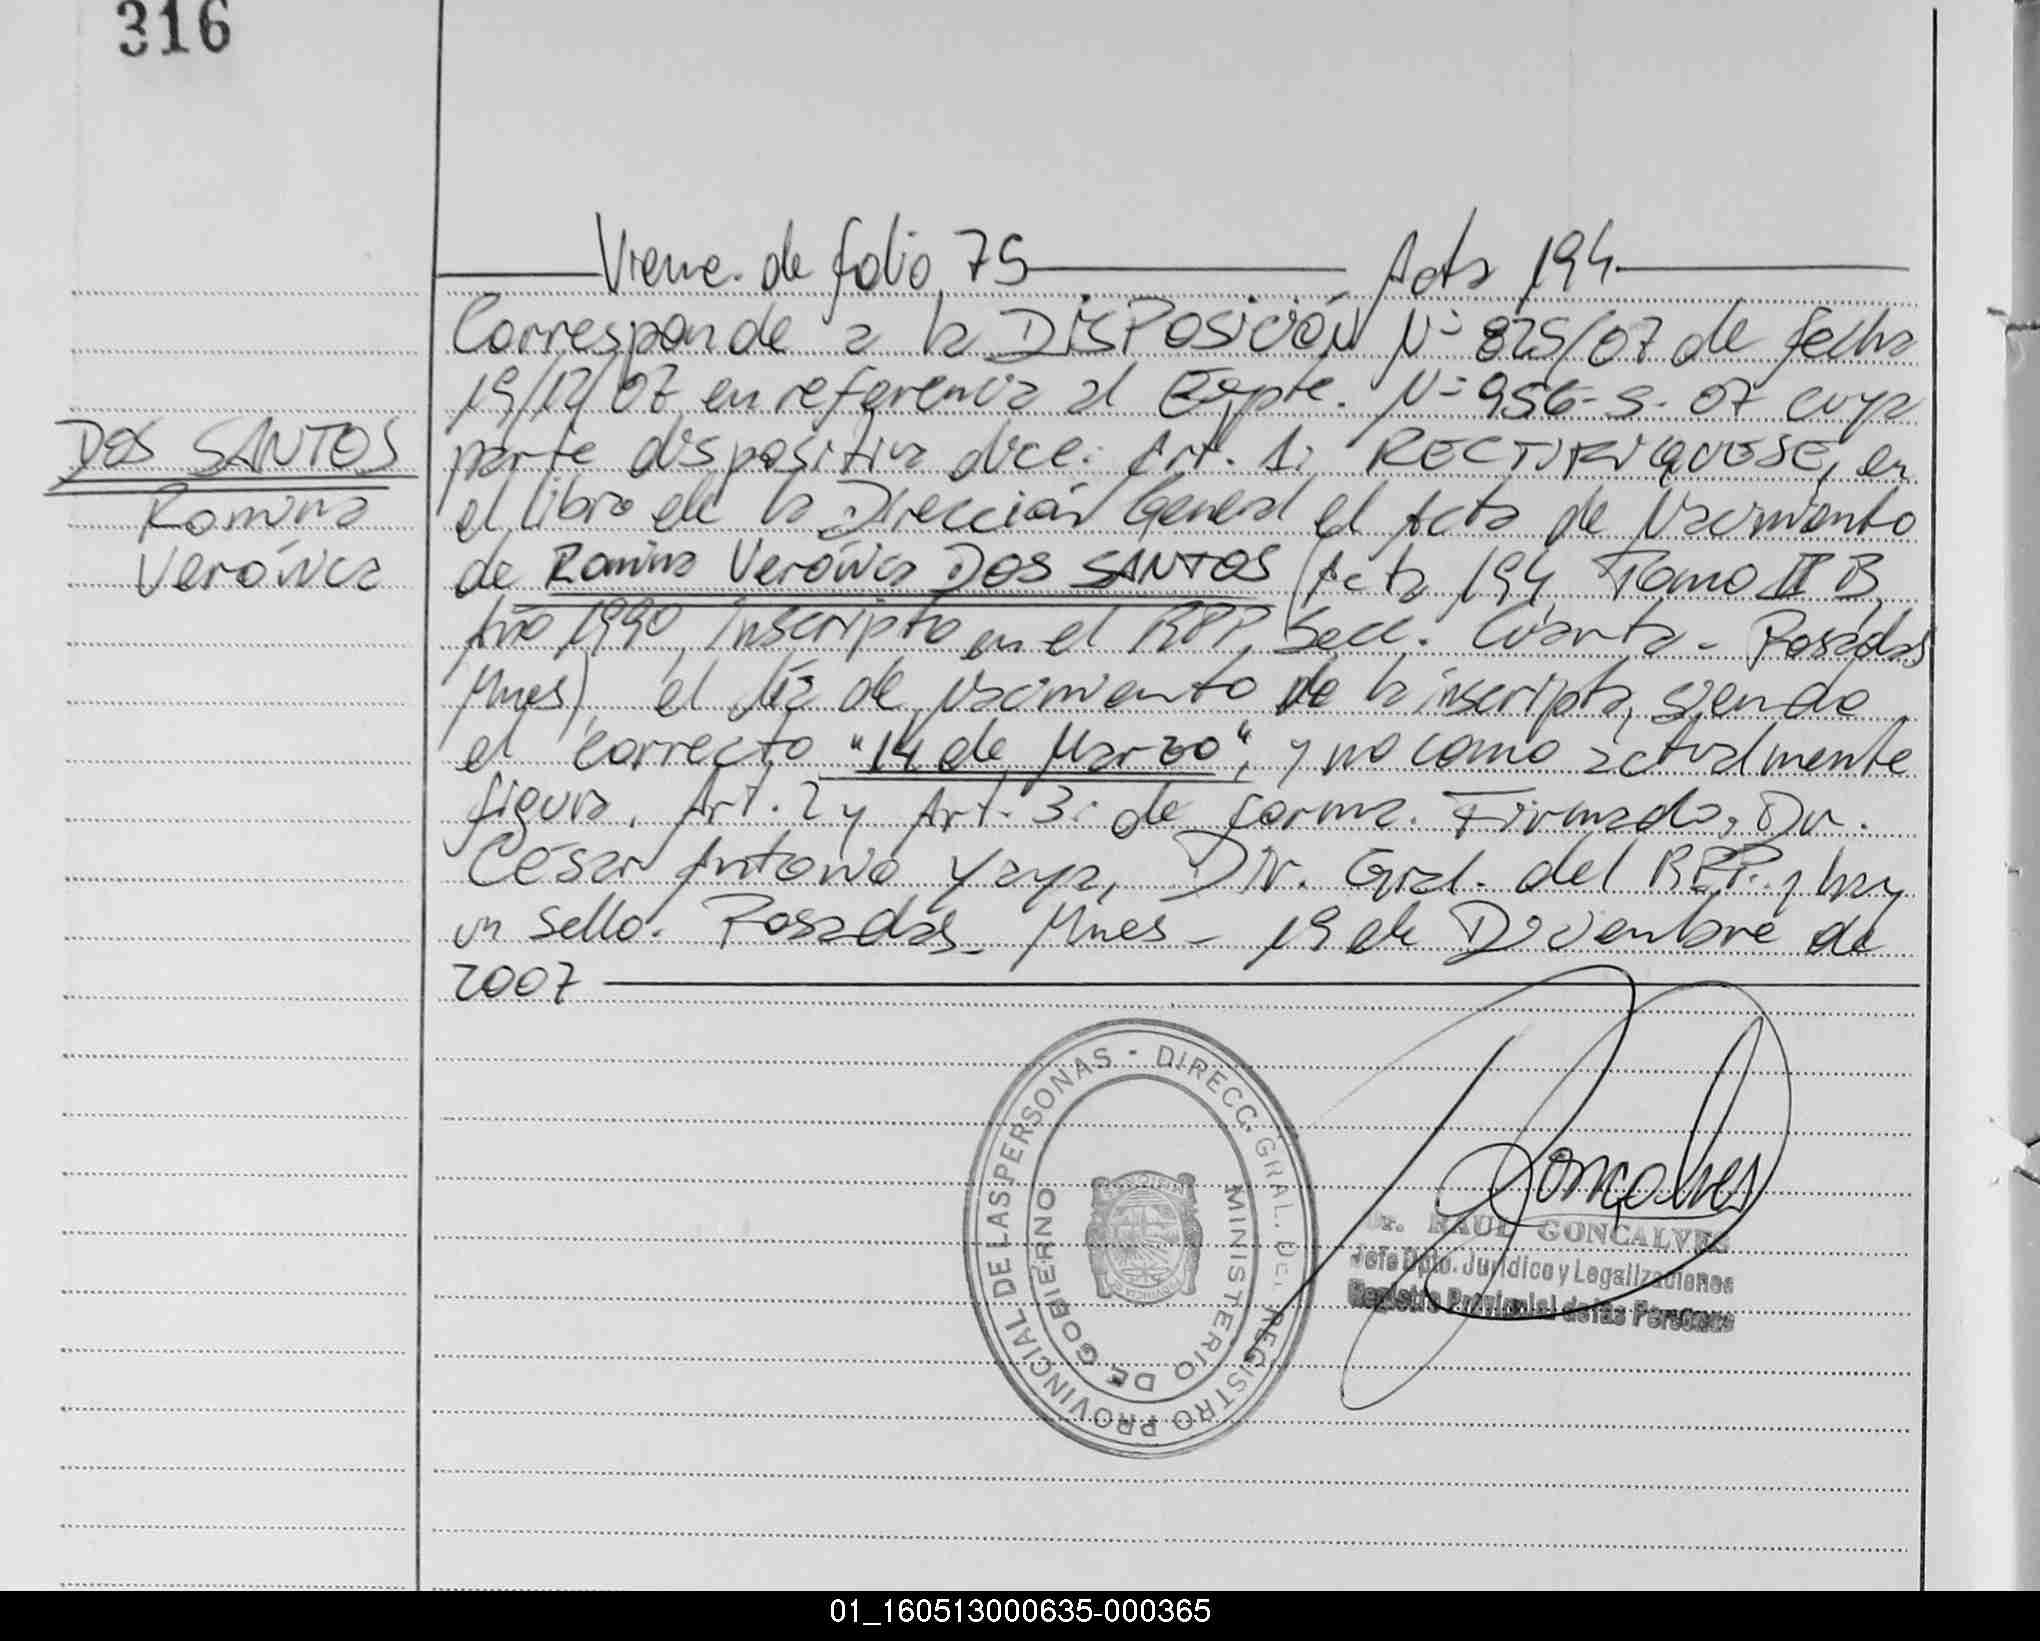 316
Viene de folio 75 Acta 194
Corresponde a la DISPOSICIÓN Nº 825/07 de fecha
19/12/07 en referencia al Expte. Nº 956-S-07 cuya
parte dispositiva dice: Art. 1: RECTIFIQUESE, en
DOS SANTOS
el libro de la Dirección General el Acta de Nacimiento
Romina
Verónica
de Romina Verónica DOS SANTOS (Acta 194 Tomo II B,
Año 1990, inscripto en el RPP, Secc. Cuarta - Posadas
Mnes), el día de nacimiento de la inscripta, siendo
el correcto "14 de Marzo", y no como actualmente
figura. Art. 2 y Art. 3: de forma. Firmado, Dr.
César Antonio Yaya, Dir. Gral. del RPP. y hay
un sello. Posadas - Mnes - 19 de Diciembre de
2007
DIRECC. GRAL. DEL REGISTRO PROVINCIAL DE LAS PERSONAS -
MINISTERIO DE GOBIERNO
Goncalves
Dr. RAUL GONCALVES
Jefe Dpto. Jurídico y Legalizaciones
Registro Provincial de las Personas
01_160513000635-000365